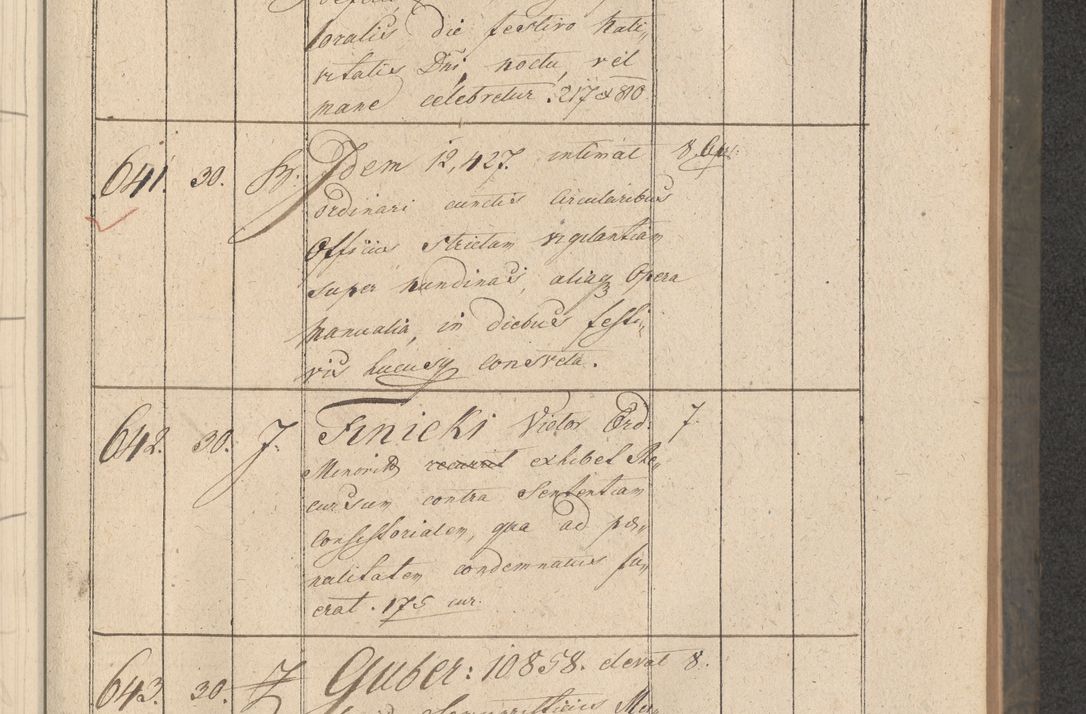 toralis die festivo Nati„
vitatis Dni, noctu, vel
mane celebretur. 217 & 810
641. 30. Idem 12,427. intimat 8.
ordinari cunctis Circularibus
Officiis strictam vigilantiam
super nundinas, aliaq Opera
manualia, in diebus festi„
vis hucusq consveta.
642. 30. J. Finicki Victor Ord. 7.
Minorit recursit exhibet Re„
cursum contra Sententiam
Consistorialem, qua ad pœ„
nalitatem condemnatus fu„
erat. 175 cur.
643. 30. Guber: 10858. elevat 8.